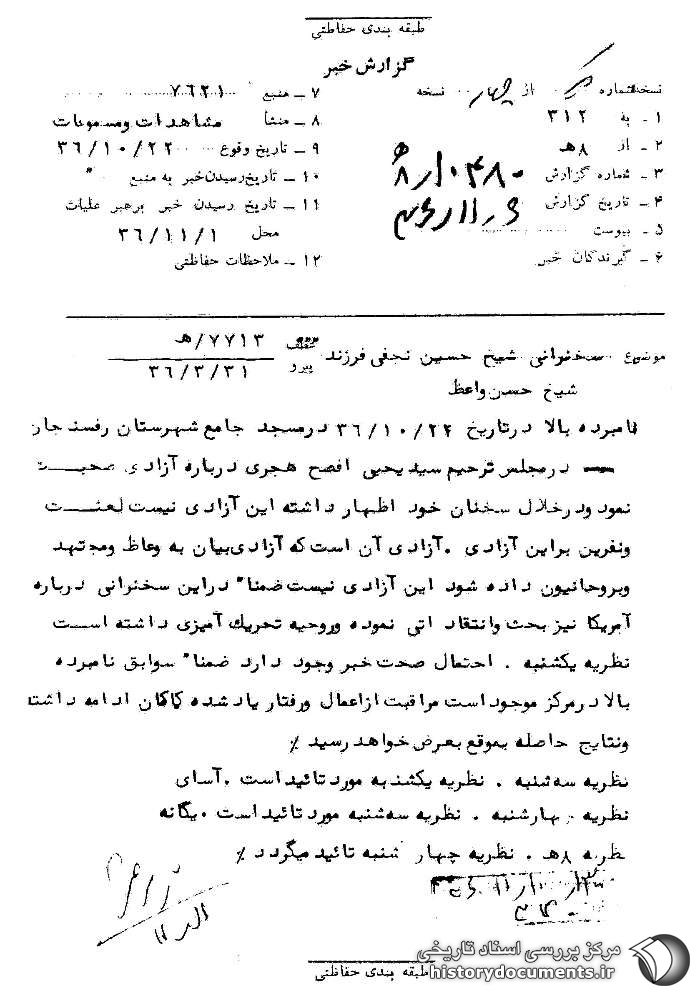 طبقه بندی حفاظتی
گزارش خبر
نسخه شماره یک از چهار نسخه
۱ - به ۳۱۲
۲ - از ۸هـ
۳ - شماره گزارش ۱۰۳۸۰/۸هـ
۴ - تاریخ گزارش ۳۶/۱۱/۶
۵ - پیوست
۶ - گیرندگان خبر
۷ - منبع ۷۶۲۱
۸ - منشأ مشاهدات ومسموعات
۹ - تاریخ وقوع ۳۶/۱۰/۲۲
۱۰ - تاریخ رسیدن خبر به منبع "
۱۱ - تاریخ رسیدن خبر برهبر عملیات
محل ۳۶/۱۱/۱
۱۲ - ملاحظات حفاظتی
موضوع سخنرانی شیخ حسین نجفی فرزند پیرو ۷۷۱۳/هـ
۳۶/۳/۳۱
شیخ حسن واعظ
نامبرده بالا درتاریخ ۳۶/۱۰/۲۲ درمسجد جامع شهرستان رفسنجان
درمجلس ترحیم سید یحیی افصح هجری درباره آزادی صحبت
نمود ودرخلال سخنان خود اظهار داشته این آزادی نیست لعنت
ونفرین براین آزادی . آزادی آن است که آزادی بیان به وعاظ ومجتهد
وبروحانیون داده شود این آزادی نیست ضمنا" دراین سخنرانی درباره
آمریکا نیز بحث وانتقاد اتی نموده وروحیه تحریک آمیزی داشته است
نظریه یکشنبه . احتمال صحت خبر وجود دارد ضمنا" سوابق نامبرده
بالا درمرکز موجود است مراقبت ازاعمال ورفتار یاد شده کاکان ادامه داشته
ونتایج حاصله بموقع بعرض خواهد رسید ٪
نظریه سه شنبه . نظریه یکشنبه مورد تائید است . آسای
نظریه چهارشنبه . نظریه سه شنبه مورد تائید است . یگانه
نظریه ۸هـ . نظریه چهارشنبه تائید میگردد ٪
طبقه بندی حفاظتی
مرکز بررسی اسناد تاریخی
historydocuments.ir